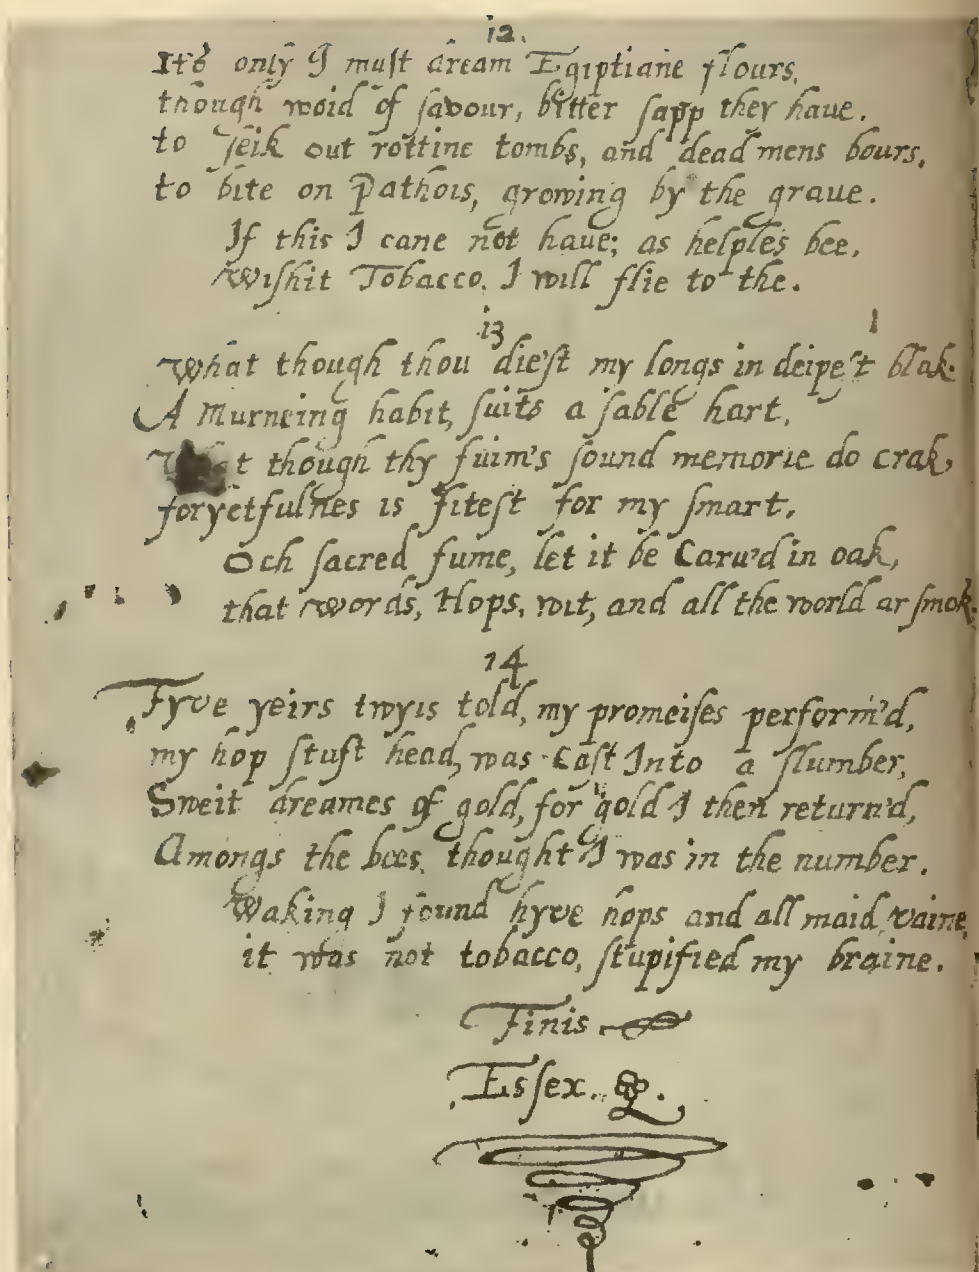 i2.
It's only I must dream Egiptiane flours,
though woid of savour, bitter sapp they haue.
to seik out rottine tombs, and dead mens bours,
to bite on Pathois, growing by the graue.
If this I cane not haue; as helples bee,
Wishit Tobacco, I will flie to the.
i3
What though thou die'st my longs in deipe't blak.
A Murneing habit, suits a sable hart,
though thy fuim's sound memorie do crak,
foryetfulnes is fitest for my smart,
Och sacred fume, let it be Caru'd in oak,
that words, Hops, wit, and all the world ar smok.
14
Fyve yeirs twyis told, my promeises perform'd,
my hop stuft head, was Cast Into a slumber,
Sweit dreames of gold, for gold I then return'd,
Amongs the bees, thought I was in the number.
Waking I found hyve hops and all maid vaine,
it was not tobacco, stupified my braine.
Finis
Essex.